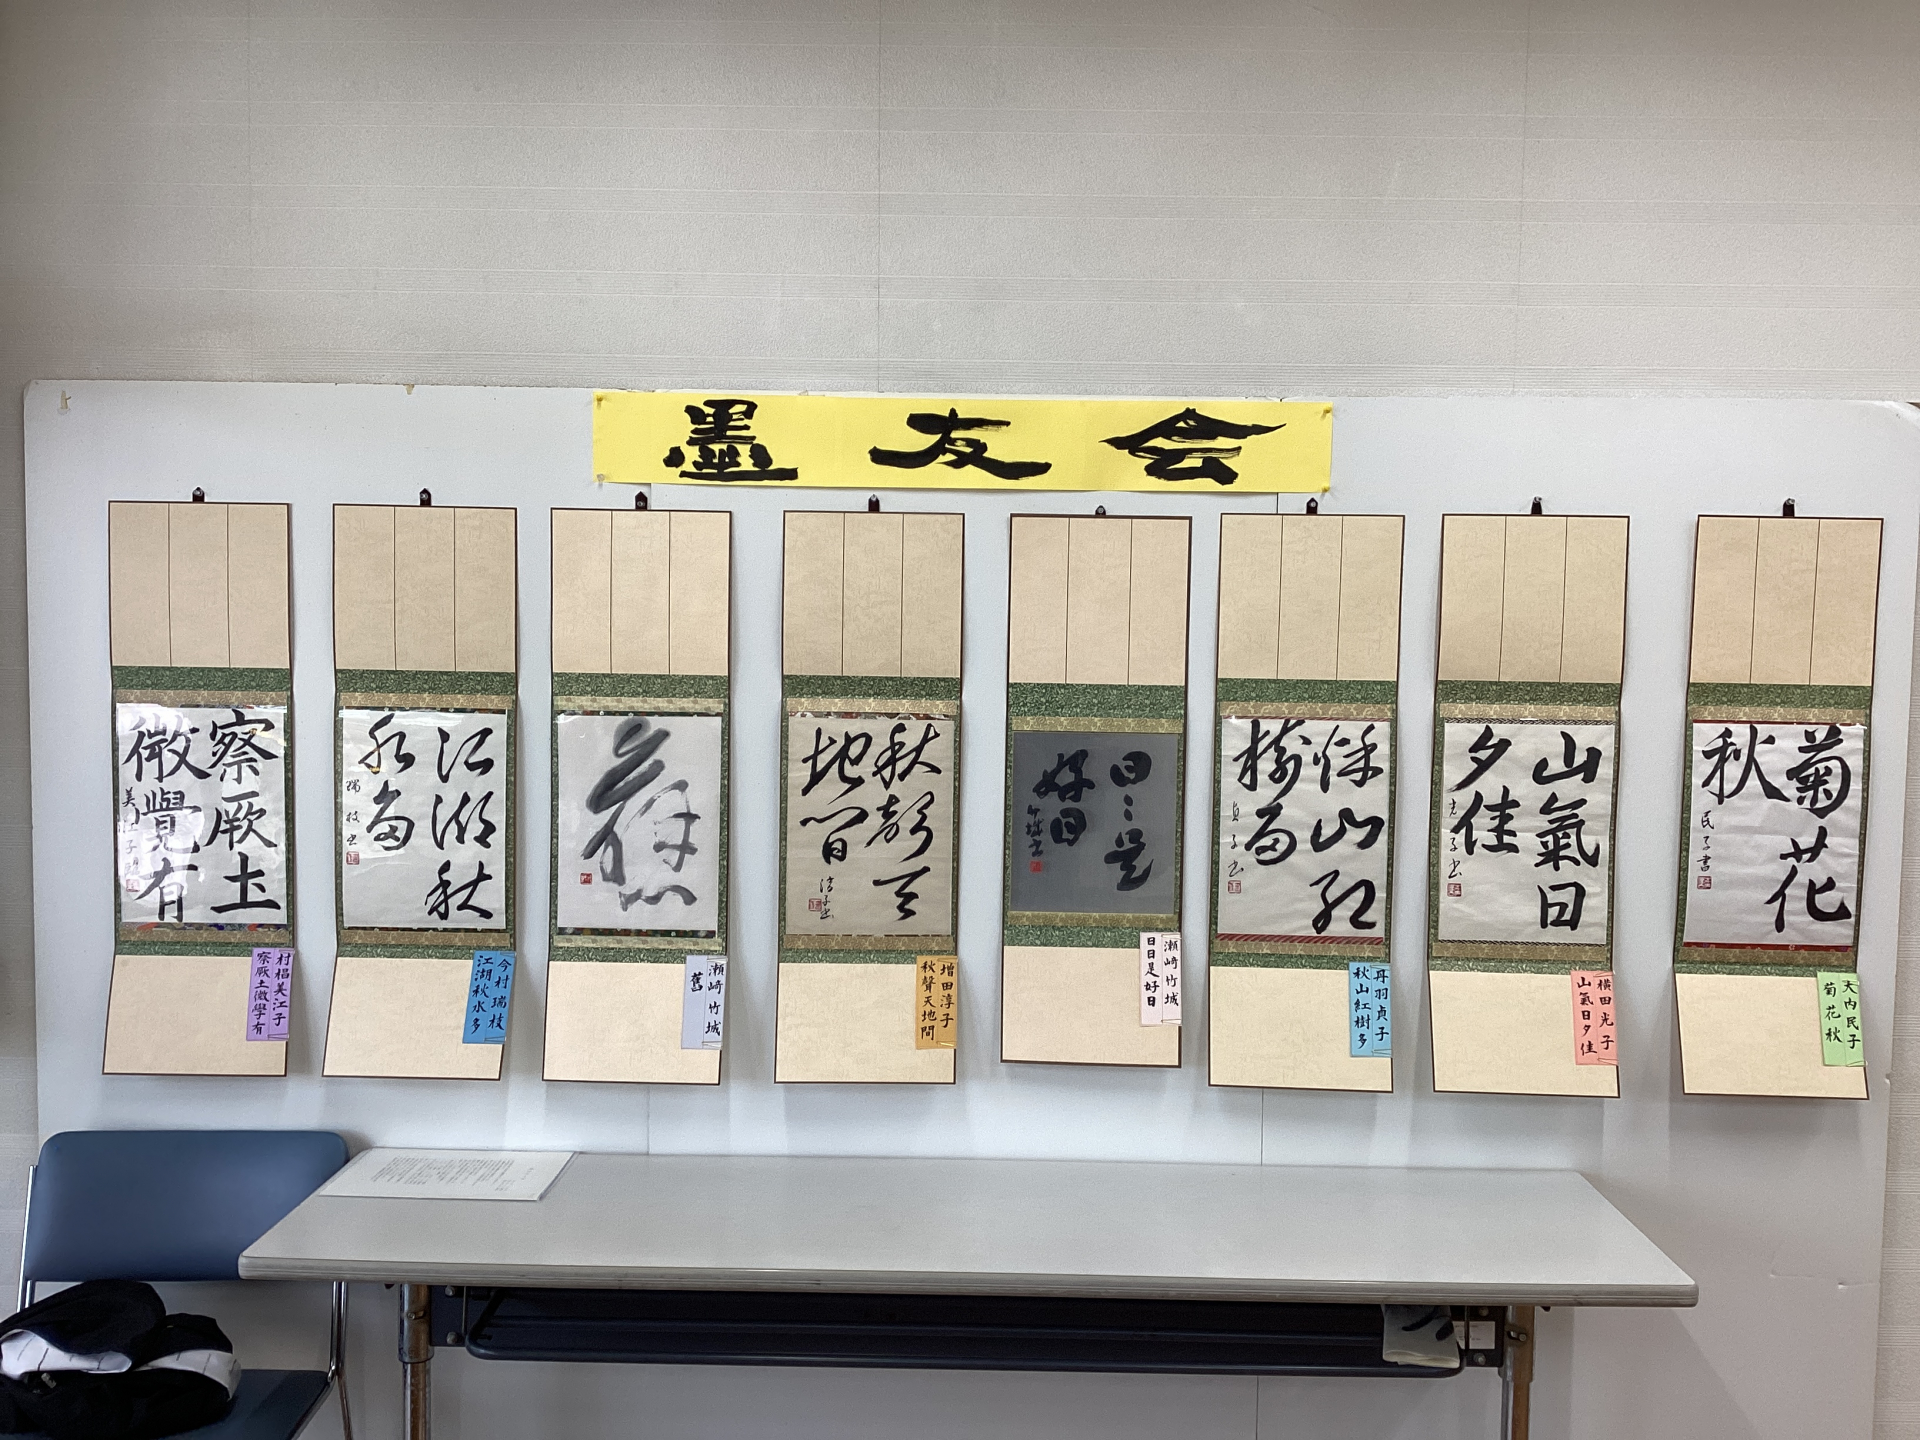 墨友会
菊花
秋
民子書
天内民子
菊花秋
山氣日
夕佳
光子書
横田光子
山氣日夕佳
秋山紅
樹多
貞子書
丹羽貞子
秋山紅樹多
日々是
好日
瀬崎竹城
日日是好日
秋聲天
地間
淳子書
増田淳子
秋聲天地間
瀬崎竹城
舊
江湖秋
水多
瑞枝書
今村瑞枝
江湖秋水多
察厥土
微覺有
村椙美江子
察厥土微學有